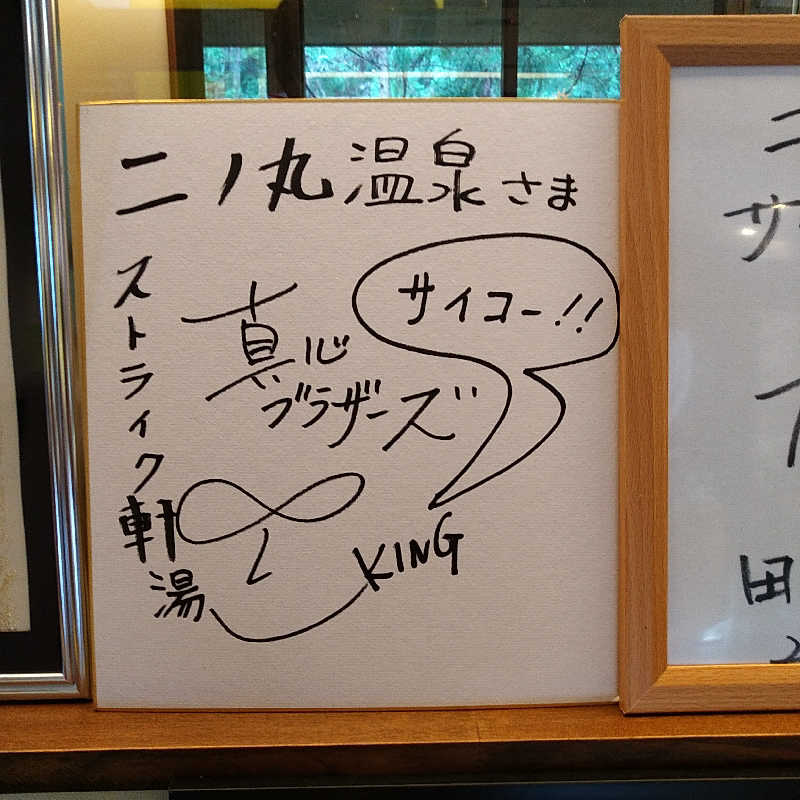 二ノ丸温泉さま
ストライク軒
湯
真心
ブラザーズ
サイコー!!
KING
ニ
サ
田